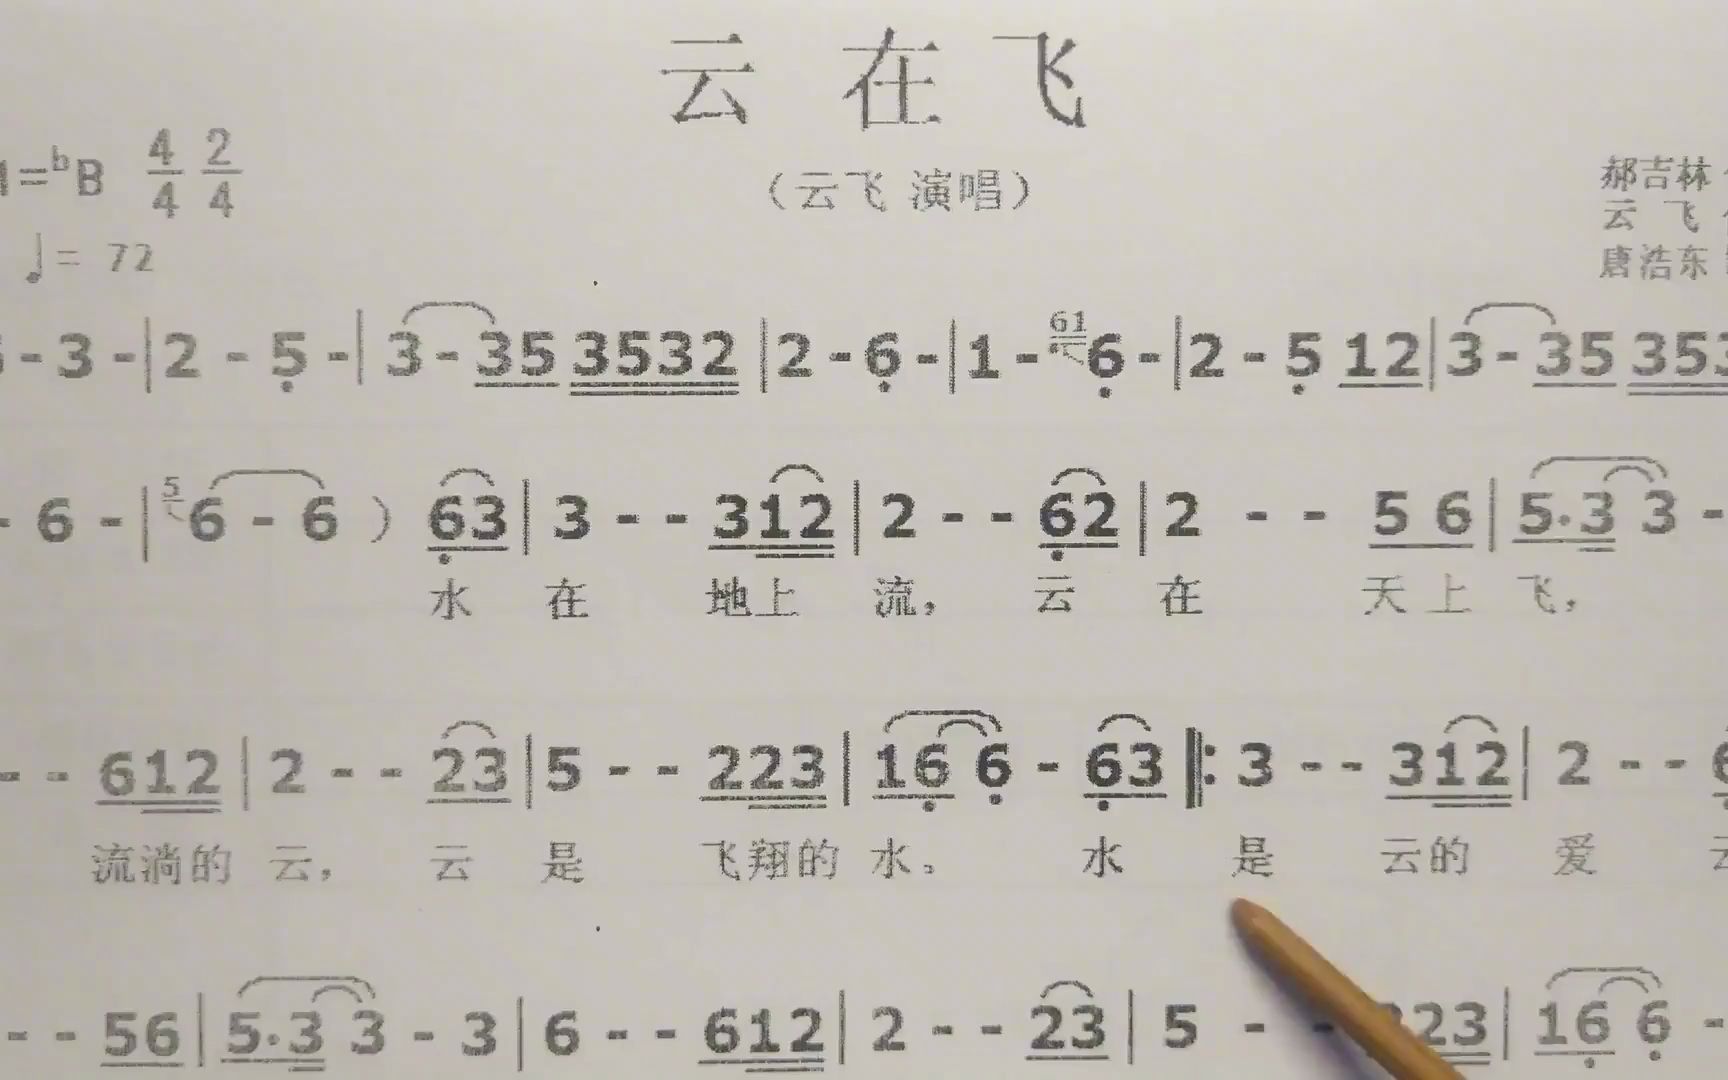 云在飞
=bB 4/4 2/4
（云飞 演唱）
郝吉林
云 飞
唐浩东
♩= 72
- 3 - | 2 - 5̣ - | 3 - 35 3532 | 2 - 6̣ - | 1 - 61 6̣ - | 2 - 5̣ 12 | 3 - 35 353
- 6 - | 5 6 - 6 ） 6̣3 | 3 - - 312 | 2 - - 6̣2 | 2 - - 5 6 | 5·3 3 -
水 在 地上 流， 云 在 天 上 飞，
- - 612 | 2 - - 23 | 5 - - 223 | 16̣ 6̣ - 6̣3 ‖: 3 - - 312 | 2 - -
流淌的 云， 云 是 飞翔的 水。 水 是 云的 爱
- - 56 | 5·3 3 - 3 | 6 - - 612 | 2 - - 23 | 5 - - 23 | 16̣ 6̣ -